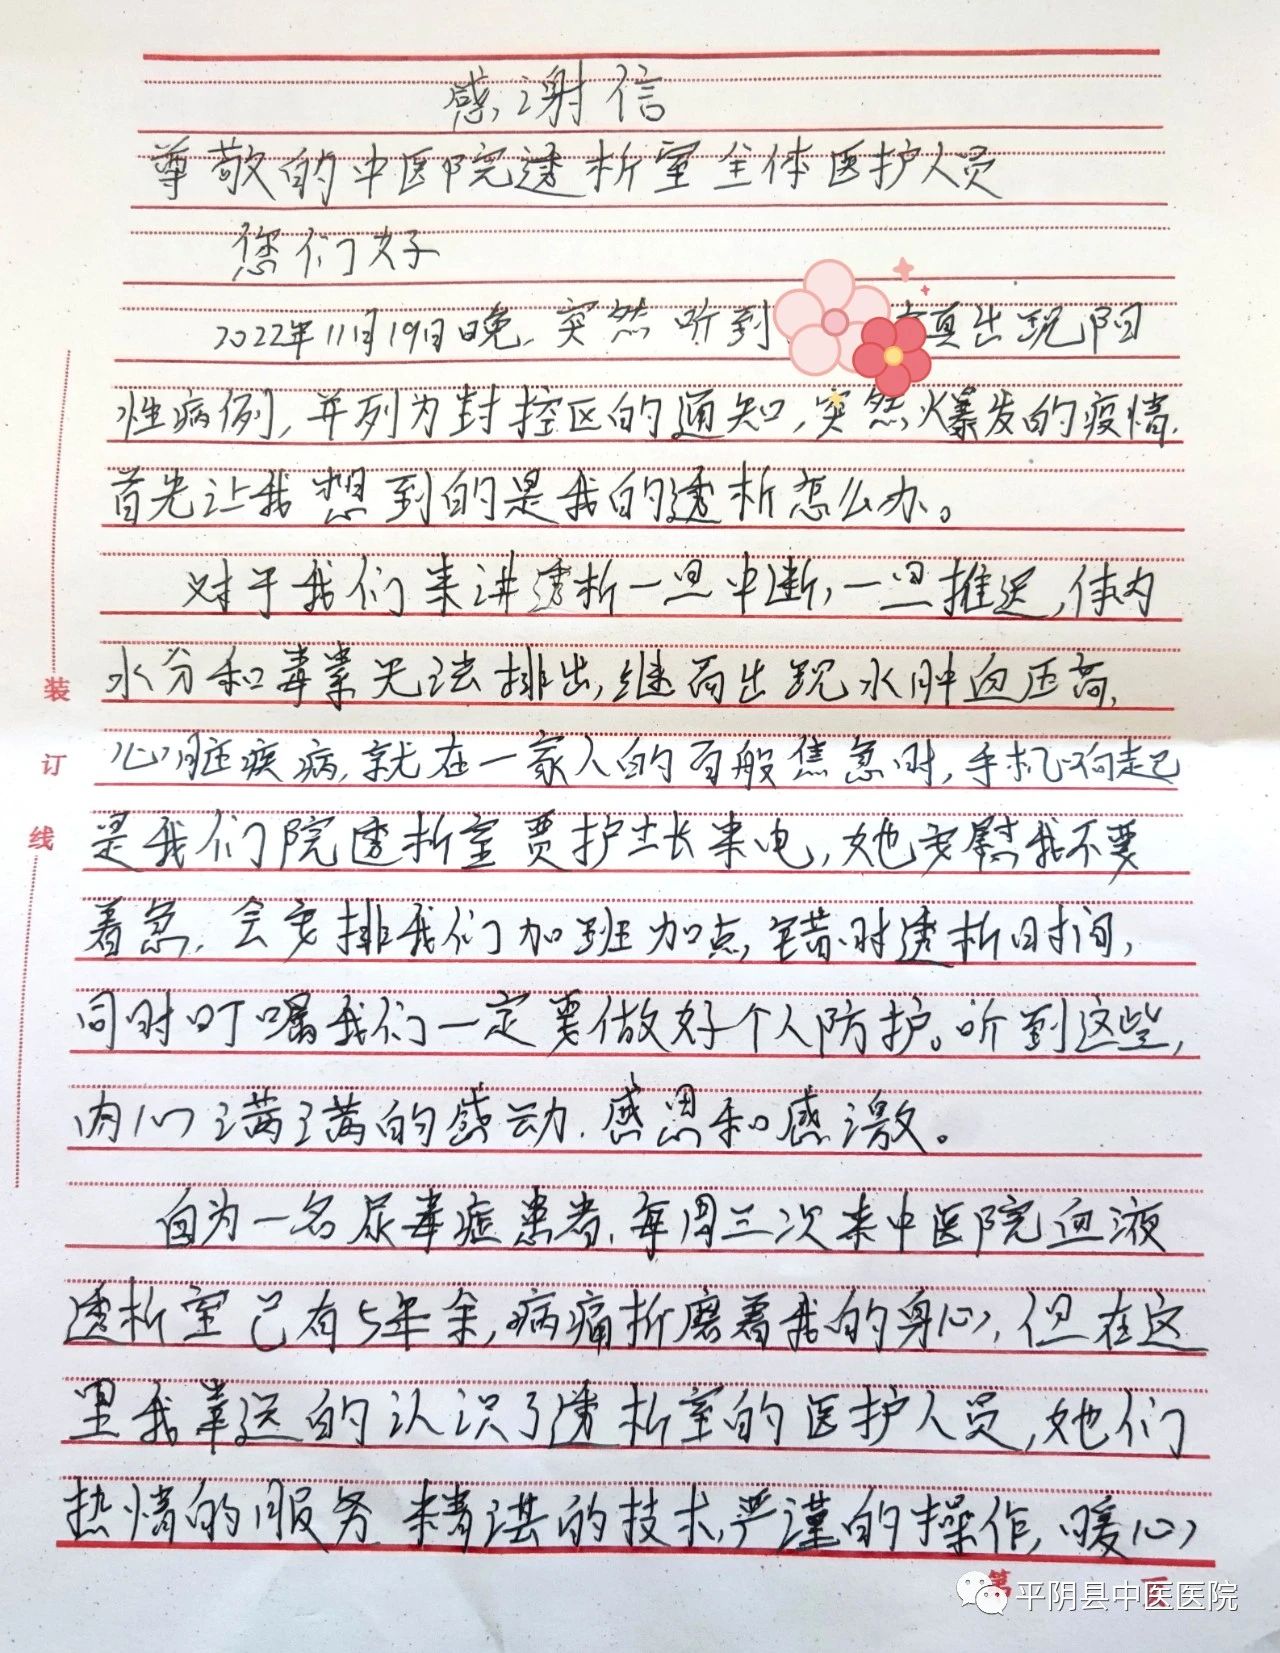 感谢信
尊敬的中医院透析室全体医护人员
您们好
2022年11月19日晚,突然听到 镇出现阳
性病例,并列为封控区的通知,突然爆发的疫情,
首先让我想到的是我的透析怎么办。
对于我们来讲透析一旦中断,一旦推迟,体内
水分和毒素无法排出,继而出现水肿血压高,
心脏疾病,就在一家人的百般焦急时,手机响起
是我们院透析室贾护士长来电,她安慰我不要
着急,会安排我们加班加点,错时透析时间,
同时叮嘱我们一定要做好个人防护。听到这些,
内心满满的感动,感恩和感激。
因为一名尿毒症患者,每周三次来中医院血液
透析室已有5年余,病痛折磨着我的身心,但在这
里我幸运的认识了透析室的医护人员,她们
热情的服务 精湛的技术,严谨的操作,暖心
装
订
线
第 页
平阴县中医医院